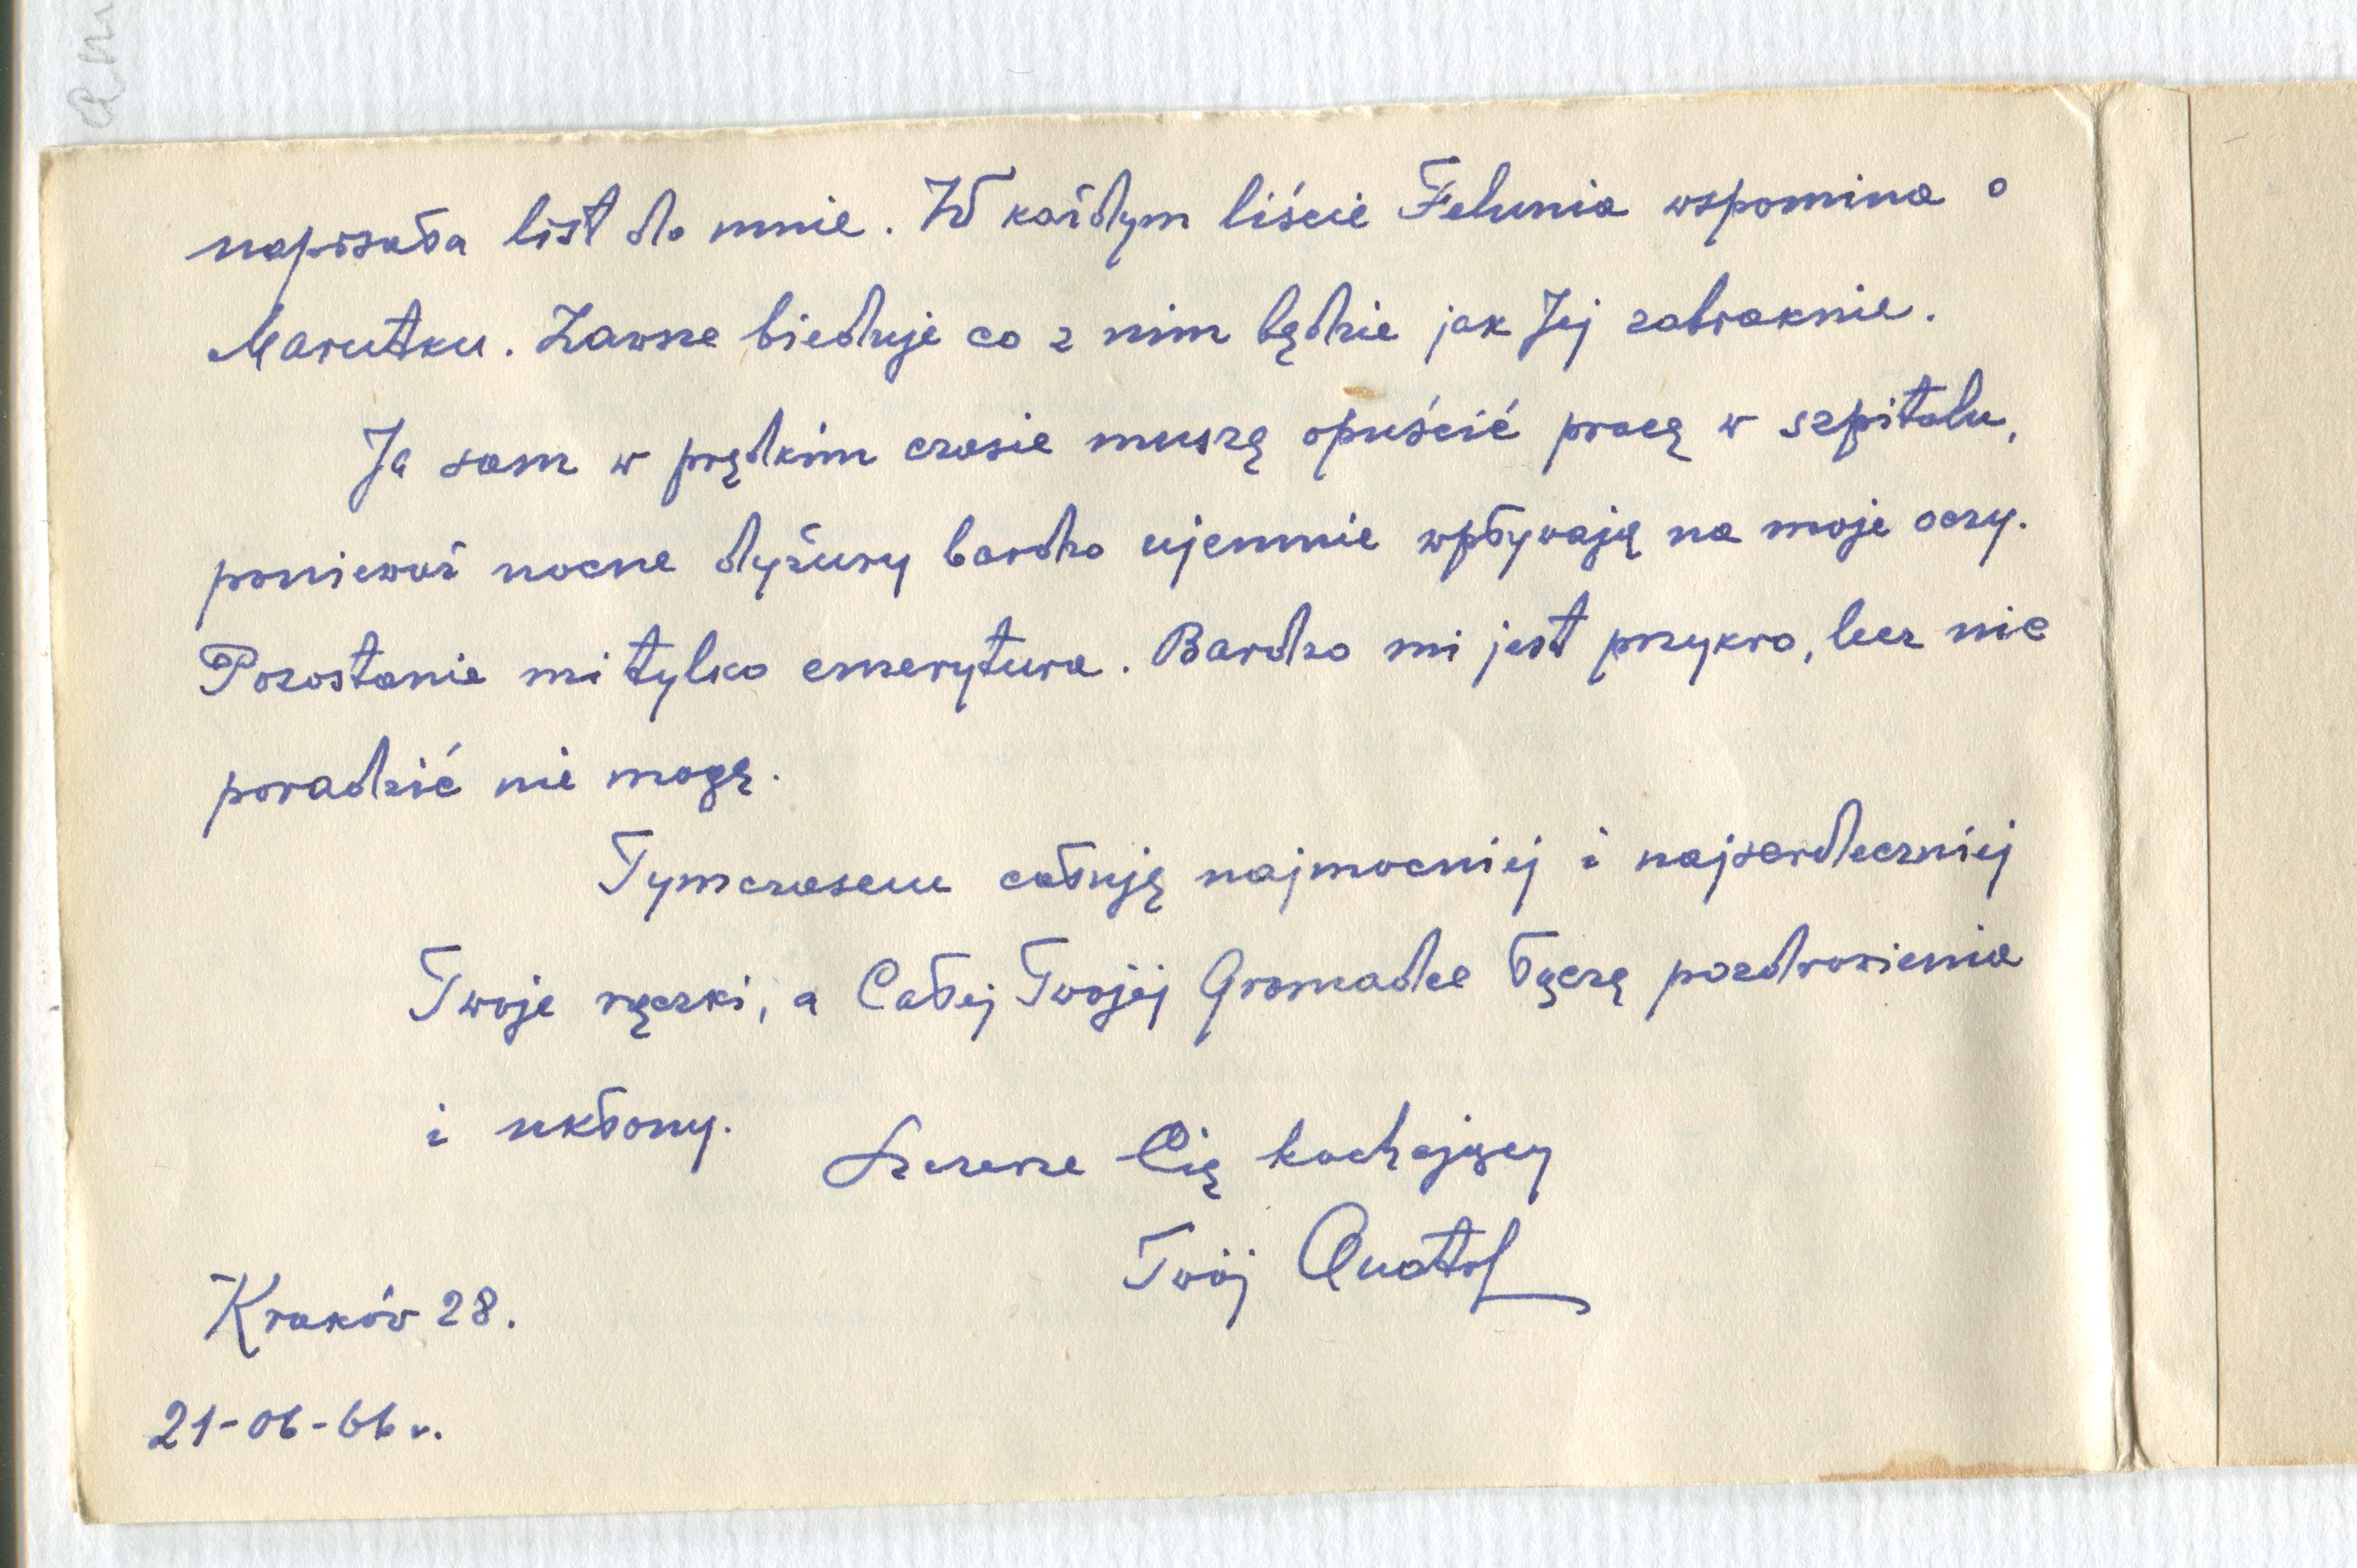 napisała list do mnie. W każdym liście Felunia wspomina o
Marutku. Zawsze bieduje co z nim będzie jak Jej zabraknie.
Ja sam w prędkim czasie muszę opuścić pracę w szpitalu,
ponieważ nocne dyżury bardzo ujemnie wpływają na moje oczy.
Pozostanie mi tylko emerytura. Bardzo mi jest przykro, lecz nic
poradzić nie mogę.
Tymczasem całuję najmocniej i najserdeczniej
Twoje rączki, a Całej Twojej Gromadce łączę pozdrowienia
i ukłony.
Szczerze Cię kochający
Twój Anatol
Kraków 28.
21-06-66 r.